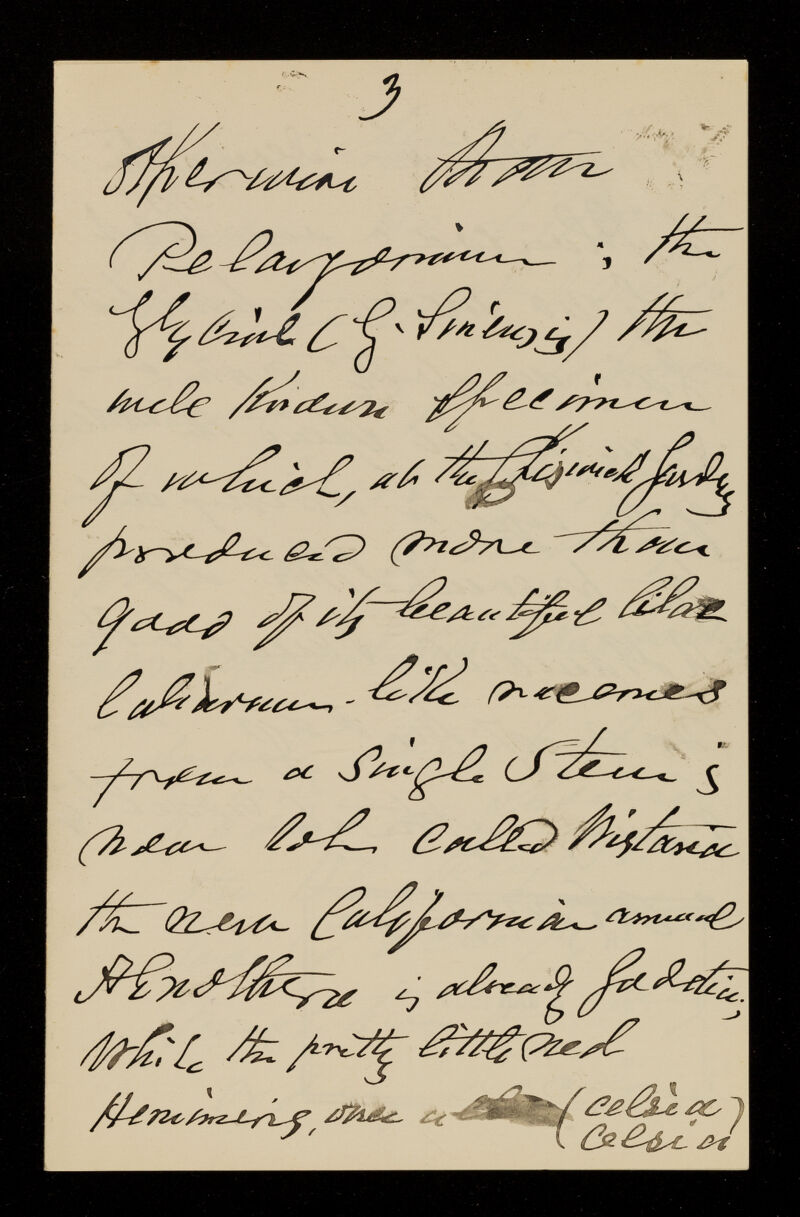 3
otherwise than
Pelargonium ; the
Glycine (G. Sinensis) the
well known specimen
of which, at the Chiswick Gardens
produced more than
9000 of its beautiful lilac
laburnum-like racemes
from a single stem is
now to be called Wistaria
the new Californian annual
Œnothera is already Godetia;
while the pretty little red
Hemimeris, once (celsia)
Celsia